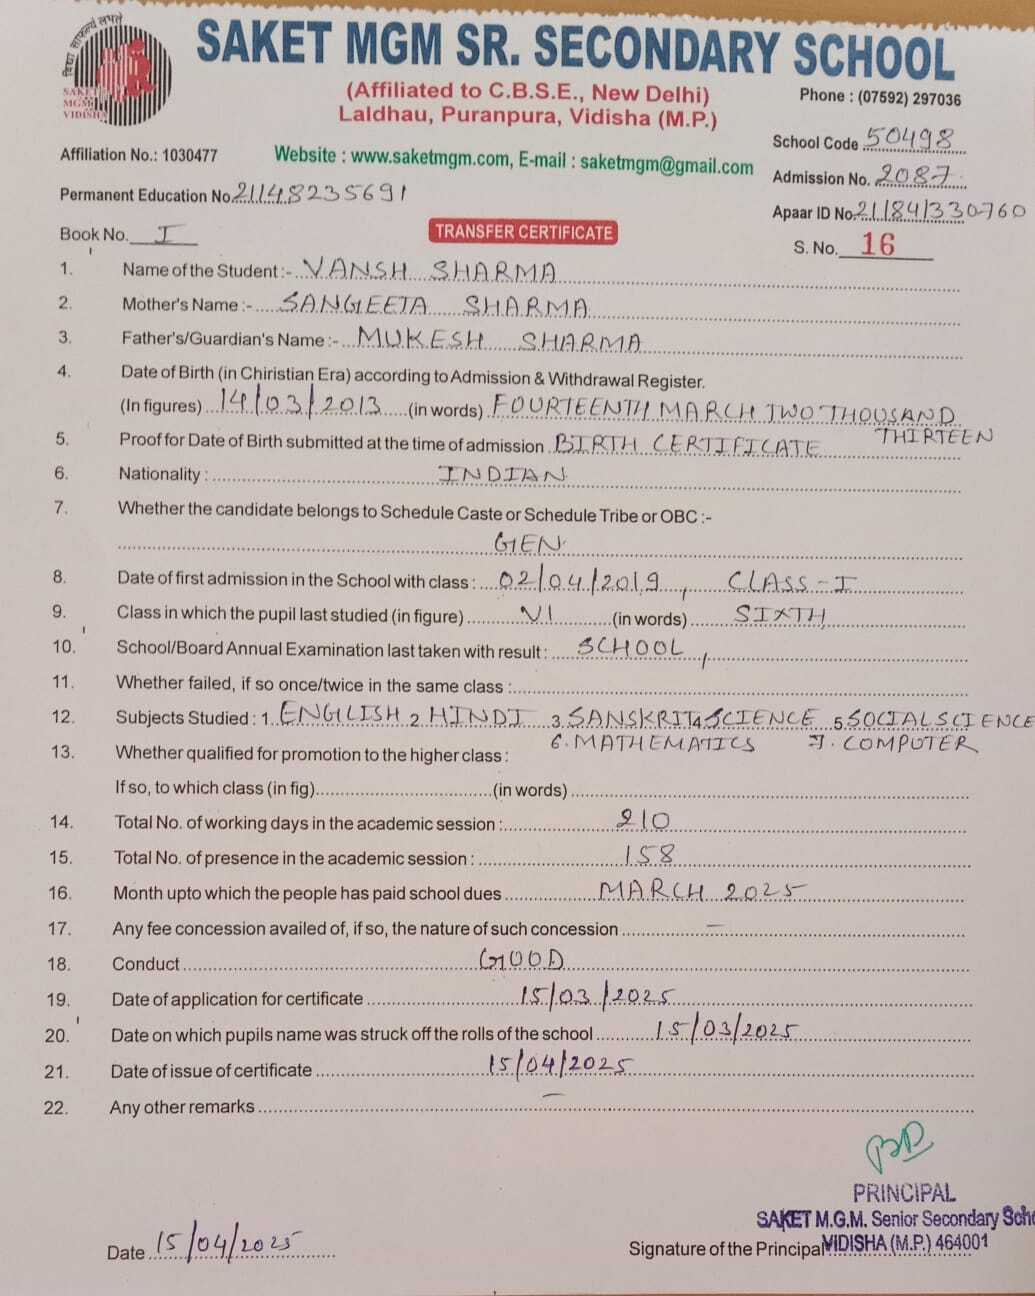 विद्या साफल्यं लभते
SAKET
MGM
VIDISHA
SAKET MGM SR. SECONDARY SCHOOL
(Affiliated to C.B.S.E., New Delhi)
Phone : (07592) 297036
Laldhau, Puranpura, Vidisha (M.P.)
School Code 50498
Affiliation No.: 1030477
Website : www.saketmgm.com, E-mail : saketmgm@gmail.com
Admission No. 2087
Permanent Education No. 21148235691
Apaar ID No. 211841330760
Book No. I
TRANSFER CERTIFICATE
S. No. 16
1. Name of the Student :- VANSH SHARMA
2. Mother's Name :- SANGEETA SHARMA
3. Father's/Guardian's Name :- MUKESH SHARMA
4. Date of Birth (in Chiristian Era) according to Admission & Withdrawal Register.
(In figures) 14/03/2013 (in words) FOURTEENTH MARCH TWO THOUSAND
THIRTEEN
5. Proof for Date of Birth submitted at the time of admission BIRTH CERTIFICATE
6. Nationality : INDIAN
7. Whether the candidate belongs to Schedule Caste or Schedule Tribe or OBC :-
GEN
8. Date of first admission in the School with class : 02/04/2019, CLASS-I
9. Class in which the pupil last studied (in figure) VI (in words) SIXTH
10. School/Board Annual Examination last taken with result : SCHOOL,
11. Whether failed, if so once/twice in the same class :
12. Subjects Studied : 1. ENGLISH 2. HINDI 3. SANSKRIT 4. SCIENCE 5. SOCIAL SCIENCE
6. MATHEMATICS 7. COMPUTER
13. Whether qualified for promotion to the higher class :
If so, to which class (in fig) (in words)
14. Total No. of working days in the academic session : 210
15. Total No. of presence in the academic session : 158
16. Month upto which the people has paid school dues MARCH 2025
17. Any fee concession availed of, if so, the nature of such concession –
18. Conduct GOOD
19. Date of application for certificate 15/03/2025
20. Date on which pupils name was struck off the rolls of the school 15/03/2025
21. Date of issue of certificate 15/04/2025
22. Any other remarks –
PRINCIPAL
SAKET M.G.M. Senior Secondary Scho
Date 15/04/2025
Signature of the Principal VIDISHA (M.P.) 464001